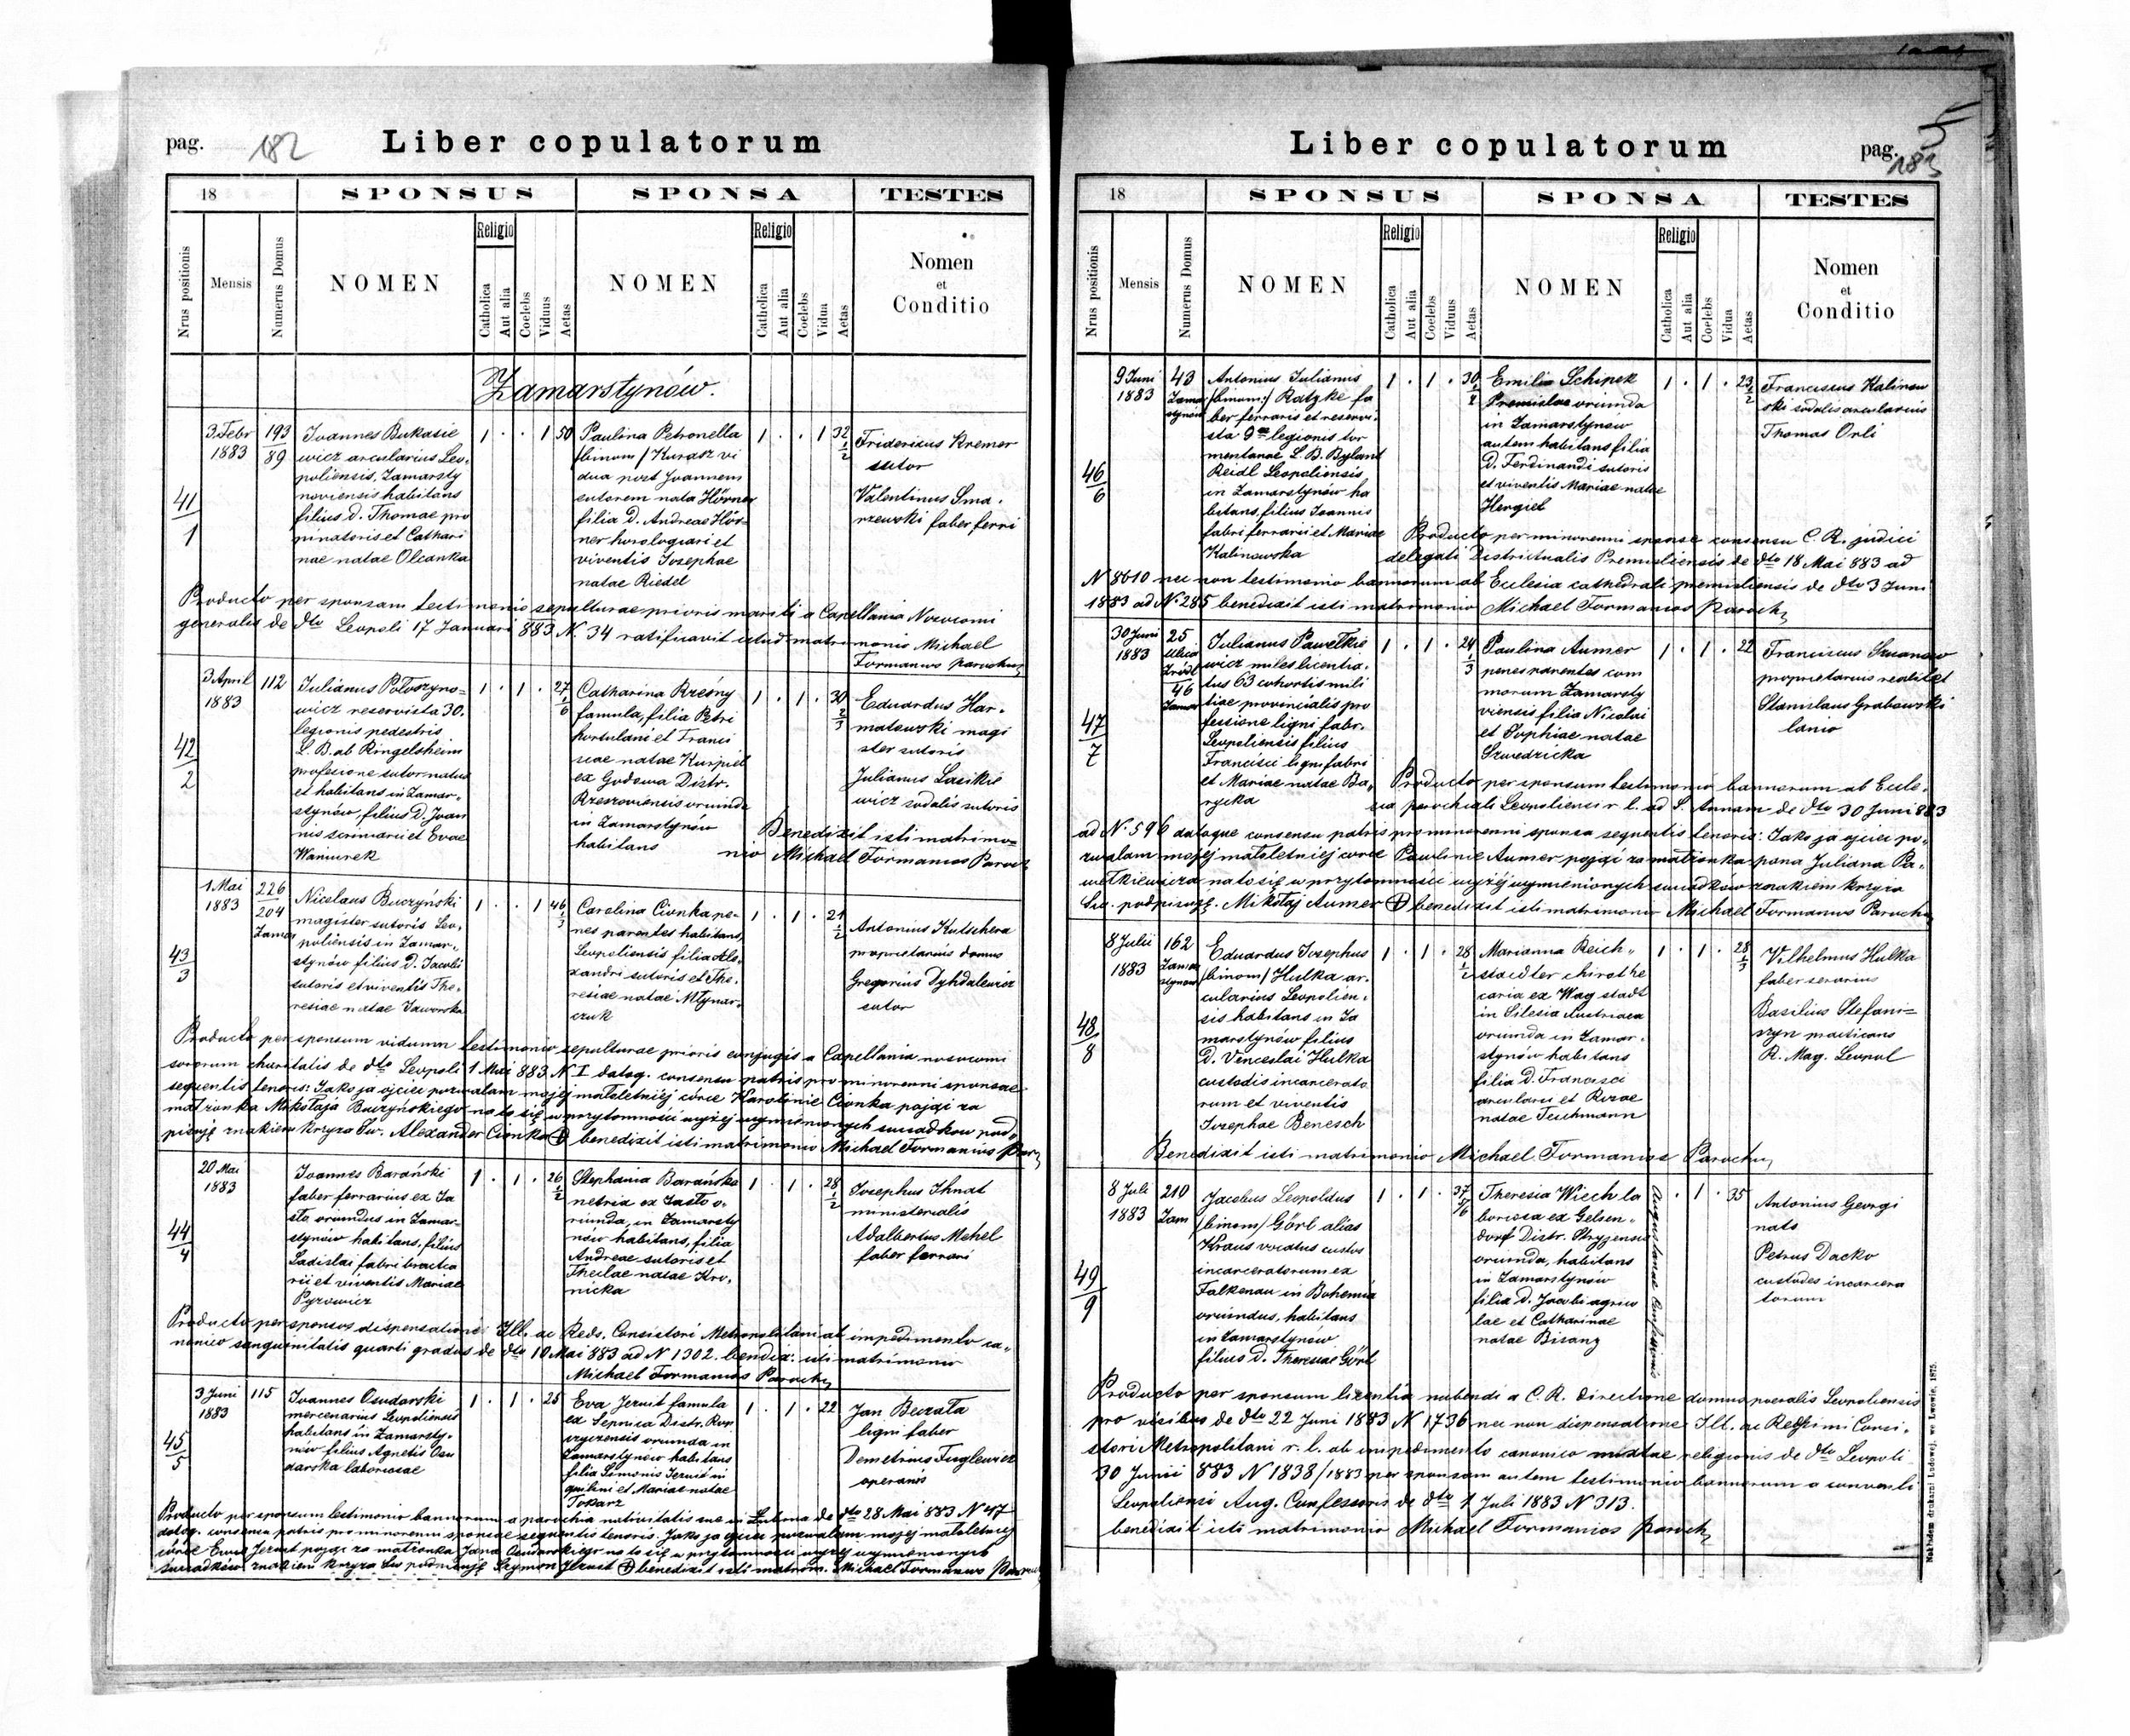 pag. 182 Liber copulatorum
18 SPONSUS SPONSA TESTES
Nrus positionis Mensis Numerus Domus NOMEN Religio Catholica Aut alia Coelebs Viduus Aetas NOMEN Religio Catholica Aut alia Coelebs Vidua Aetas Nomen et Conditio
Zamarstynów.
41/1
3 Febr
1883
193
89
Joannes Bukasie
wicz arcularius Leo.
poliensis, Zamarsty
noviensis habitans
filius d. Thomae pro
pinatoris et Cathari
nae natae Olcanka
1 . . 1 50
Paulina Petronella
/binom/ Kurasz vi
dua post Joannem
sutorem nata Hörner
filia D. Andreae Hör-
ner horologiari et
viventis Josephae
natae Riedel
1 . . 1 32 1/2
Fridericus Kremer
sutor
Valentinus Sma.
rzewski faber ferri
Producto per sponsam testimonio sepulturae prioris mariti a Capellania Nosocomi
generalis de dto Leopoli 17 Januari 883 N. 34 ratificavit istud matrimonio Michael
Formanios parochus
42/2
3 April
1883
112
Julianus Potoszyno-
wicz reservista 30.
legionis pedestris
L. B. ab Ringelsheim
profesione sutor natus
et habitans in Zamar-
stynów, filius D. Joan
nis scriniarii et Evae
Waniurek
1 . 1 . 27 1/6
Catharina Rzeóny
famula, filia Petri
hortulani et Franci
scae natae Kurpiel
ex Godowa Distr.
Rzeszoviensis oriunda
in Zamarstynów
habitans
1 . 1 . 30 2/3
Eduardus Har.
matewski magi
ster sutoris
Julianus Lasikie
wicz sodalis sutoris
Benedixit isti matrimo-
nio Michael Formanios Paroch
43/3
1 Mai
1883
226
204
Zamar
Nicolaus Buczyński
magister sutoris Leo,
poliensis in Zamar-
stynów filius D. Jacobi
sutoris et viventis The-
resiae natae Jaworska
1 . . 1 46 1/3
Carolina Cionka pe-
nes parentes habitans,
Leopoliensis filia Ale-
xandri sutoris et The-
resiae natae Młynar-
czuk
1 . 1 . 21 1/2
Antonius Kutschera
proprietarius domus
Gregorius Dyhdalewicz
sutor
Producto per sponsum viduum testimonio sepulturae prioris conjugis a Capellania nosocomi
sororum charitatis de dto Leopoli 1 Mai 883 N I datoq. consensu patris pro minorenni sponsae
sequentis tenoris: Jako ja ojciec pozwalam mojej małoletniej córce Karolinie Cionka pojąć za
małżonka Mikołaja Buczyńskiego na to się w przytomności wyżej wymienionych świadków pod-
pisuję znakiem krzyża Św. Alexander Cionka ⊕ benedixit isti matrimonio Michael Formanios Par
44/4
20 Mai
1883
Joannes Barański
faber ferrarius ex Ja
sło oriundus in Zamar-
stynów habitans, filius
Ladislai fabri bractea
rii et viventis Mariae
Pyrowicz
1 . 1 . 26 1/2
Stephania Barańska
netria ex Jasło o-
riunda, in Zamarsty
nów habitans, filia
Andreae sutoris et
Theclae natae Kro.
nicka
1 . 1 . 28 1/2
Josephus Ihnat
ministerialis
Adalbertus Mehel
faber ferrari
Producto per sponsos dispensatione Ill. ac Reds. Consistori Metropolitani ab impedimento ca-
nonico sanguinitatis quarti gradus de dto 10 Mai 883 ad N 1302. bendix: isti matrimonio
Michael Formanios Paroch
45/5
3 Juni
1883
115
Joannes Osudarski
mercenarius Leopoliensis
habitans in Zamarsty-
nów filius Agnetis Osu
darska laboriosae
1 . 1 . 25
Eva Jezuit famula
ex Sepnica Distr. Rop
czycensis oriunda in
Zamarstynów habitans
filia Simonis Jezuit in
quilini et Mariae natae
Tokarz
1 . 1 . 22
Jan Buzata
ligni faber
Demetrius Fuglewicz
operarius
Producto per sponsum testimonio bannorum a parochia nativitatis suae in Lubina de dto 28 Mai 883 N 47
datoq. consensu patris pro minorenni sponsae sequentis tenoris. Jako ja ojciec pozwalam mojej małoletniej
córce Ewie Jezuit pojąć za małżonka Jana Osudarskiego na to się w przytomności wyżej wymienionych
świadków znakiem krzyża św podpisuję Szymon Jezuit ⊕ benedixit isti matrim. Michael Formanios Paroch
Liber copulatorum pag. 183
18 SPONSUS SPONSA TESTES
Nrus positionis Mensis Numerus Domus NOMEN Religio Catholica Aut alia Coelebs Viduus Aetas NOMEN Religio Catholica Aut alia Coelebs Vidua Aetas Nomen et Conditio
46/6
9 Juni
1883
43
Zama
stynów
Antonius Julianus
/binom:/ Ratzke fa
ber ferraris et reservi-
sta 9ae legionis tor
mentanae L. B. Byland
Reidl Leopoliensis
in Zamarstynów ha
bitans, filius Joannis
fabri ferrarii et Mariae
Kalinowska
1 . 1 . 30 1/2
Emilia Schinek
Premislae oriunda
in Zamarstynów
autem habitans filia
D. Ferdinandi sutoris
et viventis Mariae natae
Hengiel
1 . 1 . 23 1/2
Franciscus Kalinow
ski sodalis arcularius
Thomas Orli
Producto per minorenni sponsae consensu C. R. judici
delegati Districtualis Premisliensis de dto 18 Mai 883 ad
N 8610 nec non testimonio bannorum ab Eclesia cathedrali premisliensis de dto 3 Juni
1883 ad N. 285 benedixit isti matrimonio Michael Formanios Paroch
47/7
30 Juni
1883
25
Ulica
Źródl
46
Zamar
Julianus Pawełkie
wicz miles licentia-
tus 63 cohortis mili
tiae provincialis pro
fessione ligni fabr.
Leopoliensis filius
Francisci ligni fabri
et Mariae natae Ba,
rycka
1 . 1 . 24 1/3
Paulina Aumer
penes parentes com
morum Zamarsty
viensis filia Nicolai
et Sophiae natae
Szwedzicka
1 . 1 . 22
Franciscus Szuanow
proprietarius realitet
Stanislaus Grabowski
lanio
Producto per sponsum testimonio bannorum ab Eccle-
sia parochiali Leopoliensi r. l. ad S. Annam de dto 30 Juni 883
ad N. 596 datoque consensu patris pro minorenni sponsa sequentis tenoris: Jako ja ojciec po-
zwalam mojej małoletniej córce Paulinie Aumer pojąć za małżonka pana Juliana Pa-
wełkiewicza na to się w przytomności wyżej wymienionych świadków znakiem krzyża
Św. podpisuję. Mikołaj Aumer ⊕ benedixit isti matrimonio Michael Formanios Paroch
48/8
8 Julii
1883
162
Zamar
stynów
Eduardus Josephus
/binom/ Hulka ar.
cularius Leopolien-
sis habitans in Za
marstynów filius
D. Venceslai Hulka
custodis incarcerato
rum et viventis
Josephae Benesch
1 . 1 . 28 1/2
Marianna Reich-
staedter chirothe
caria ex Wag stadt
in Silesia Austriaca
oriunda in Zamar-
stynów habitans
filia D. Francisci
arcularii et Rosae
natae Teichmann
1 . 1 . 28 1/3
Vilhelmus Hulka
faber serarius
Basilius Stefani=
szyn practicans
R. Mag. Leopol
Benedixit isti matrimonio Michael Formanios Paroch
49/9
8 Juli
1883
210
Zam
Jacobus Leopoldus
/binom/ Görl alias
Kraus vocatus custos
incarceratorum ex
Falkenau in Bohemia
oriundus, habitans
in Zamarstynów
filius d. Theresiae Görl
1 . 1 . 37 5/6
Theresia Wiech la
boriosa ex Gelsen-
dorf Distr. Stryjensis
oriunda, habitans
in Zamarstynów
filia D. Jacobi agrico
lae et Catharinae
natae Bisanz
Augustanae Confessionis
. 1 . 35
Antonius Georgi
nats
Petrus Dacko
custodes incarcera
torum
Producto per sponsum licentia nubendi a C. R. Directione domus poenalis Leopoliensis
pro virsibus de dto 22 Juni 1883 N 1736 nec non dispensatione Ill. ac Redssimi Consi-
stori Metropolitani r. l. ab impedimento canonico mixtae religionis de dto Leopoli
30 Junii 883 N 1838/1883 per sponsam autem testimonio bannorum a conventi
Leopoliensi Aug. Confessoris de dto 1 Juli 1883 N 313.
benedixit isti matrimonio Michael Formanios Paroch
Nakładem drukarni Ludowej, we Lwowie, 1875.